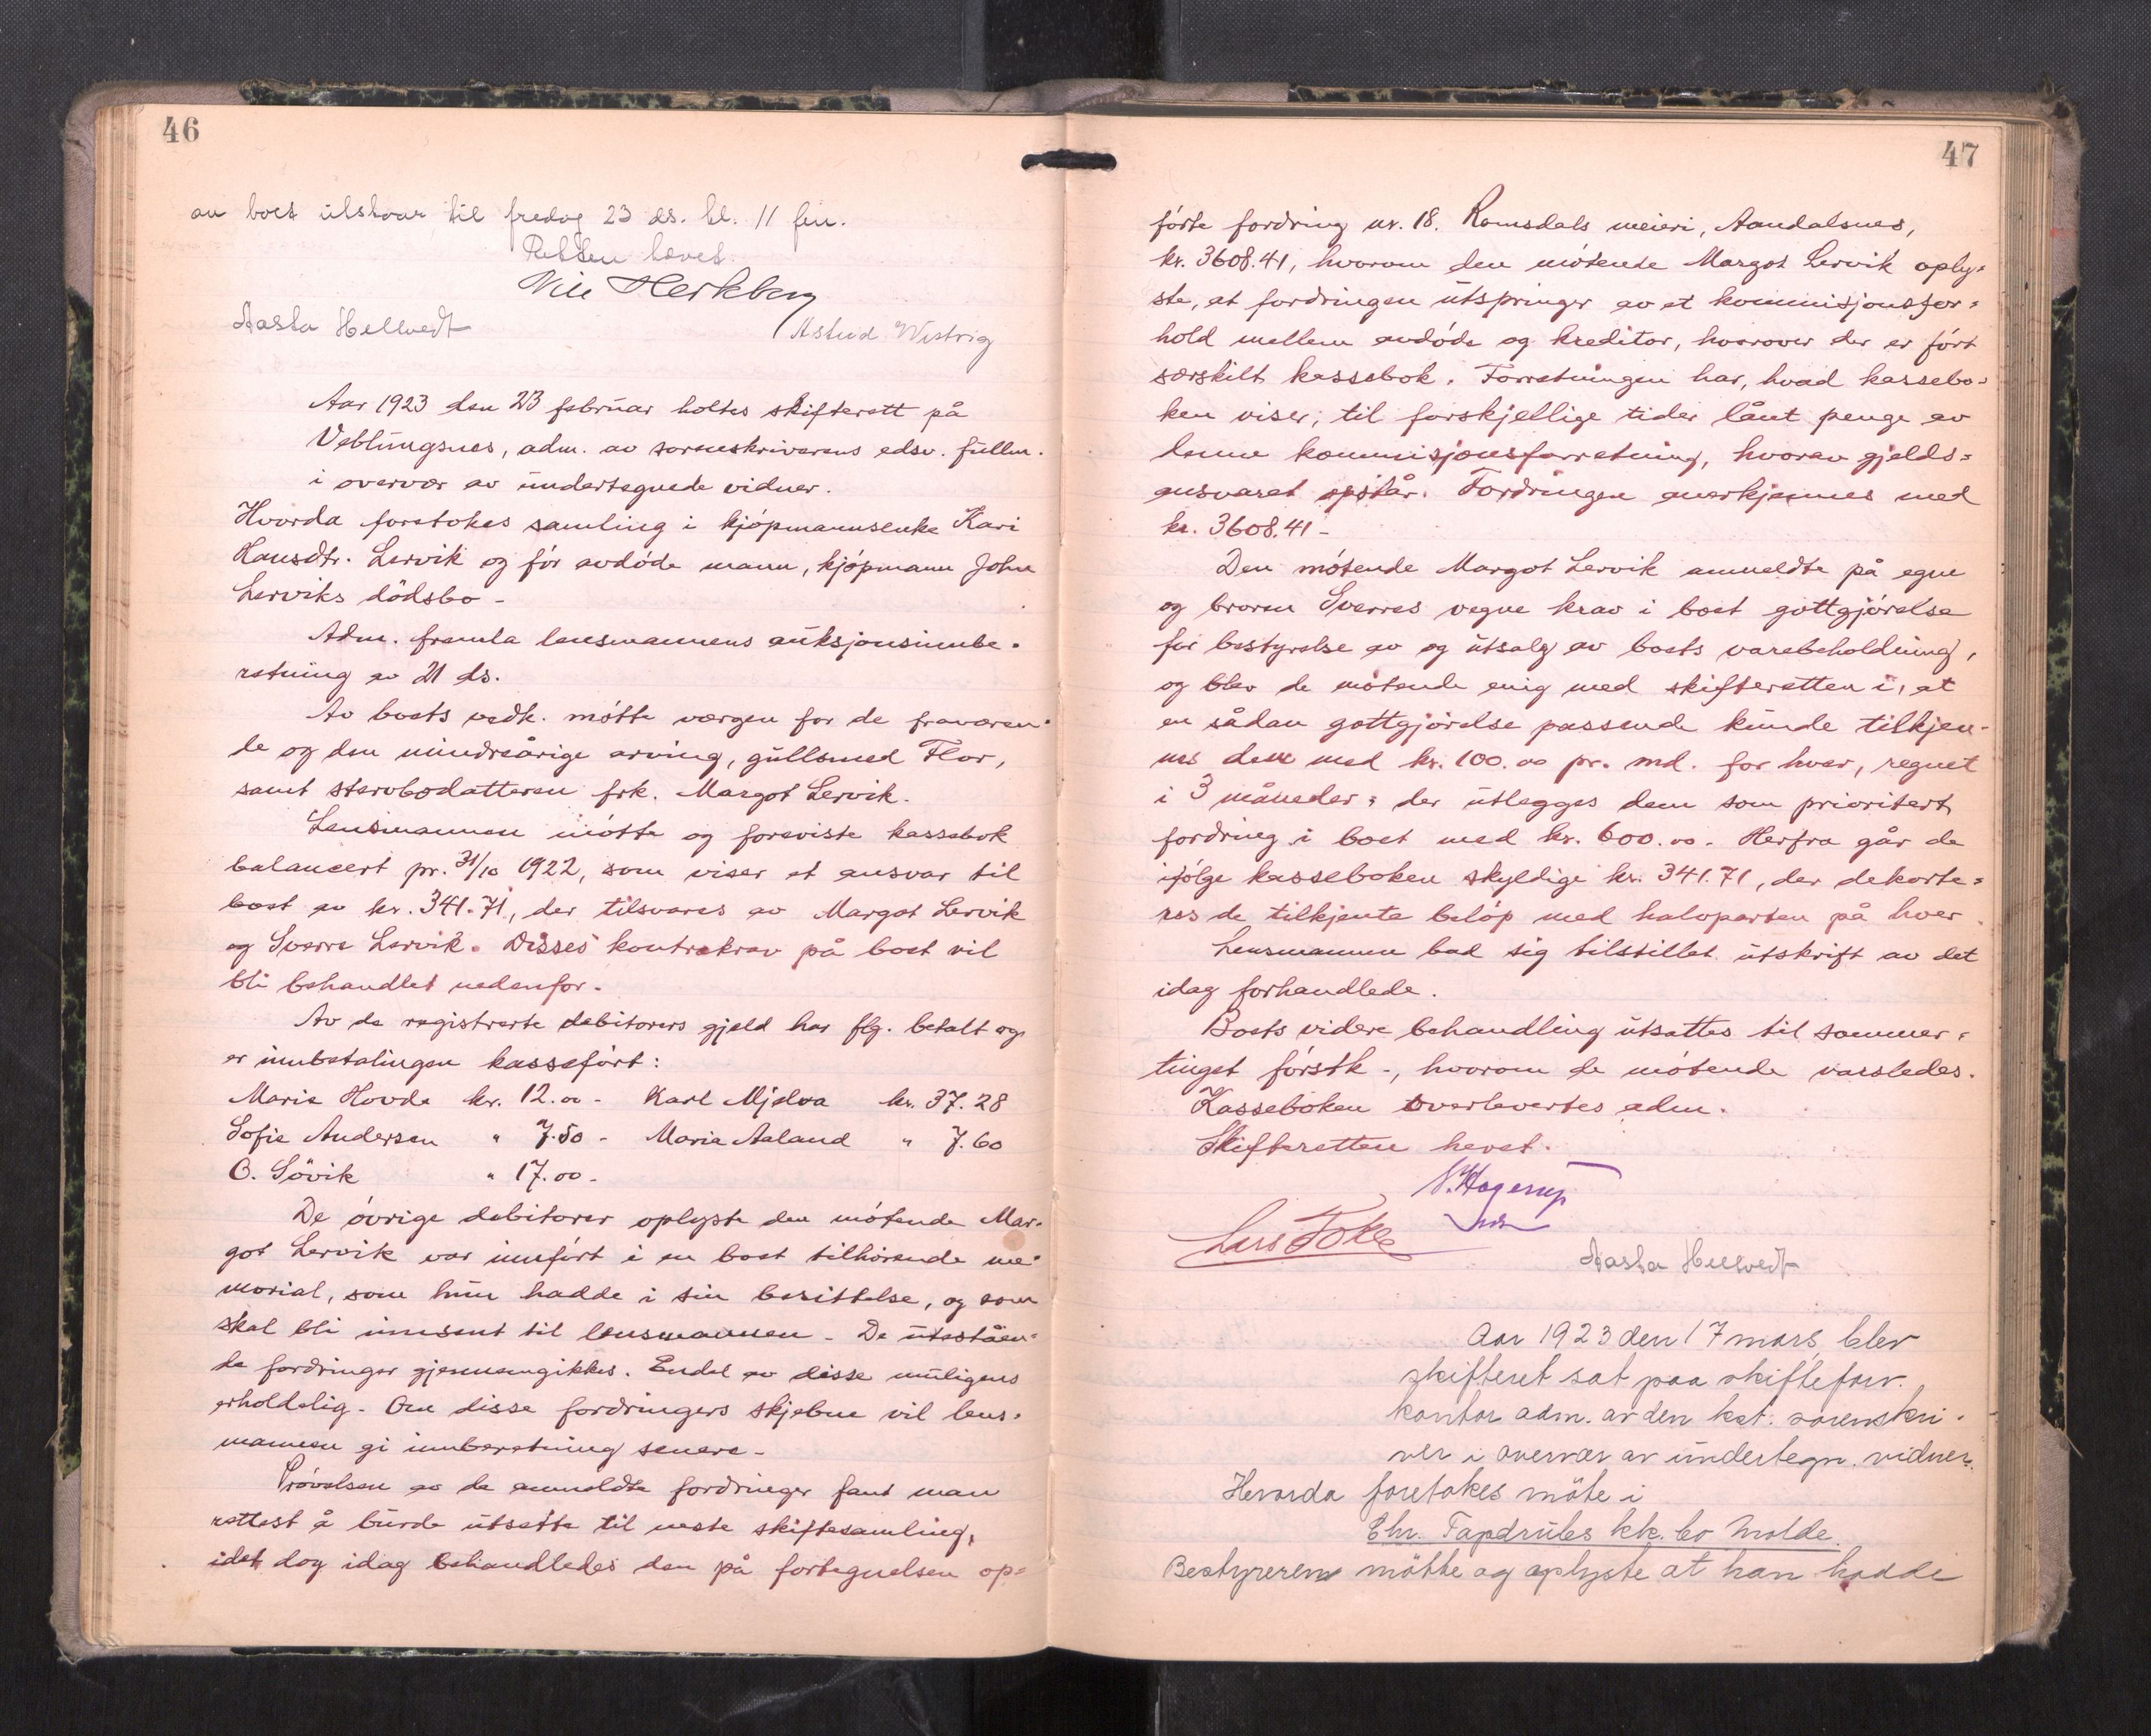 46
av boet utstaar til fredag 23 ds. kl. 11 fm.
Retten hævet.
Aasta Hellvedt
Astrid Westvig
Aar 1923 den 23 februar holtes skifterett på
Veblungsnes, adm. av sorenskriverens edsv. fullm.
i overvær av undertegnede vidner.
Hvorda foretokes samling i kjøpmannsenke Kari
Hansdtr. Lervik og før avdøde mann, kjøpmann John
Lerviks dødsbo -
Adm. fremla lensmannens auksjonsinnbe-
retning av 21 ds.
Av boets vedk. møtte vergen for de fraværen-
de og den mindreårige arving, gullsmed Flor,
samt stervbodatteren frk. Margot Lervik.
Lensmannen møtte og foreviste kassebok
balancert pr. 31/10 1922, som viser et ansvar til
boet av kr. 341.71, der tilsvares av Margot Lervik
og Sverre Lervik. Disses kontrakrav på boet vil
bli behandlet nedenfor.
Av de registrerte debitorers gjeld har flg. betalt og
er innbetalingen kasseført:
Marie Hovde kr. 12.00 - Karl Mjelva kr. 37.28
Sofie Andersen " 7.50 - Maria Aaland " 7.60
O. Søvik " 17.00 -
De øvrige debitorer oplyste den møtende Mar-
got Lervik var innført i en boet tilhørende me-
morial, som hun hadde i sin besittelse, og som
skal bli innsent til lensmannen - De uteståen-
de fordringer gjennemgikkes. Endel av disse muligens
erholdelig - Om disse fordringers skjebne vil lens-
mannen gi innberetning senere -
Prøvelsen av de anmeldte fordringer fant man
rettest å burde utsette til neste skiftesamling,
idet dog idag behandledes den på fortegnelsen op=
47
førte fordring nr. 18. Romsdals meieri, Aandalsnes,
kr. 3608.41, hvorom den møtende Margot Lervik oply=
ste, at fordringen utspringer av et kommisjonsfor=
hold mellem avdøde og kreditor, hvorover der er ført
særskilt kassebok. Forretningen har, hvad kassebo=
ken viser, til forskjellige tider lånt penge av
denne kommisjonsforretning, hvorav gjelds=
ansvaret opstår. Fordringen anerkjennes med
kr. 3608.41 -
Den møtende Margot Lervik anmeldte på egne
og broren Sverres vegne krav i boet gottgjørelse
for bestyrelse av og utsalg av boets varebeholdning,
og blev de møtende enig med skifteretten i, at
en sådan gottgjørelse passende kunde tilkjen-
nes dem med kr. 100.00 pr. md. for hver, regnet
i 3 måneder, der utlegges dem som prioritert
fordring i boet med kr. 600.00. Herfra går de
ifølge kasseboken skyldige kr. 341.71, der dekorte=
res de tilkjente beløp med halvparten på hver.
Lensmannen bad sig tilstillet utskrift av det
idag forhandlede.
Boets videre behandling utsattes til sommer-
tinget førstk -, hvorom de møtende varsledes.
Kasseboken overlevertes adm.
Skifteretten hevet.
N. Hagerup
Lars Tokle
Aasta Hellvedt
Aar 1923 den 17 mars blev
skifteret sat paa skifteforv.
kontor adm. av den kst. sorenskri-
ver i overvær av undertegn. vidner.
Hvorda foretokes møte i
Chr. Tapdrups kk. bo Molde.
Bestyreren møtte og oplyste at han hadde